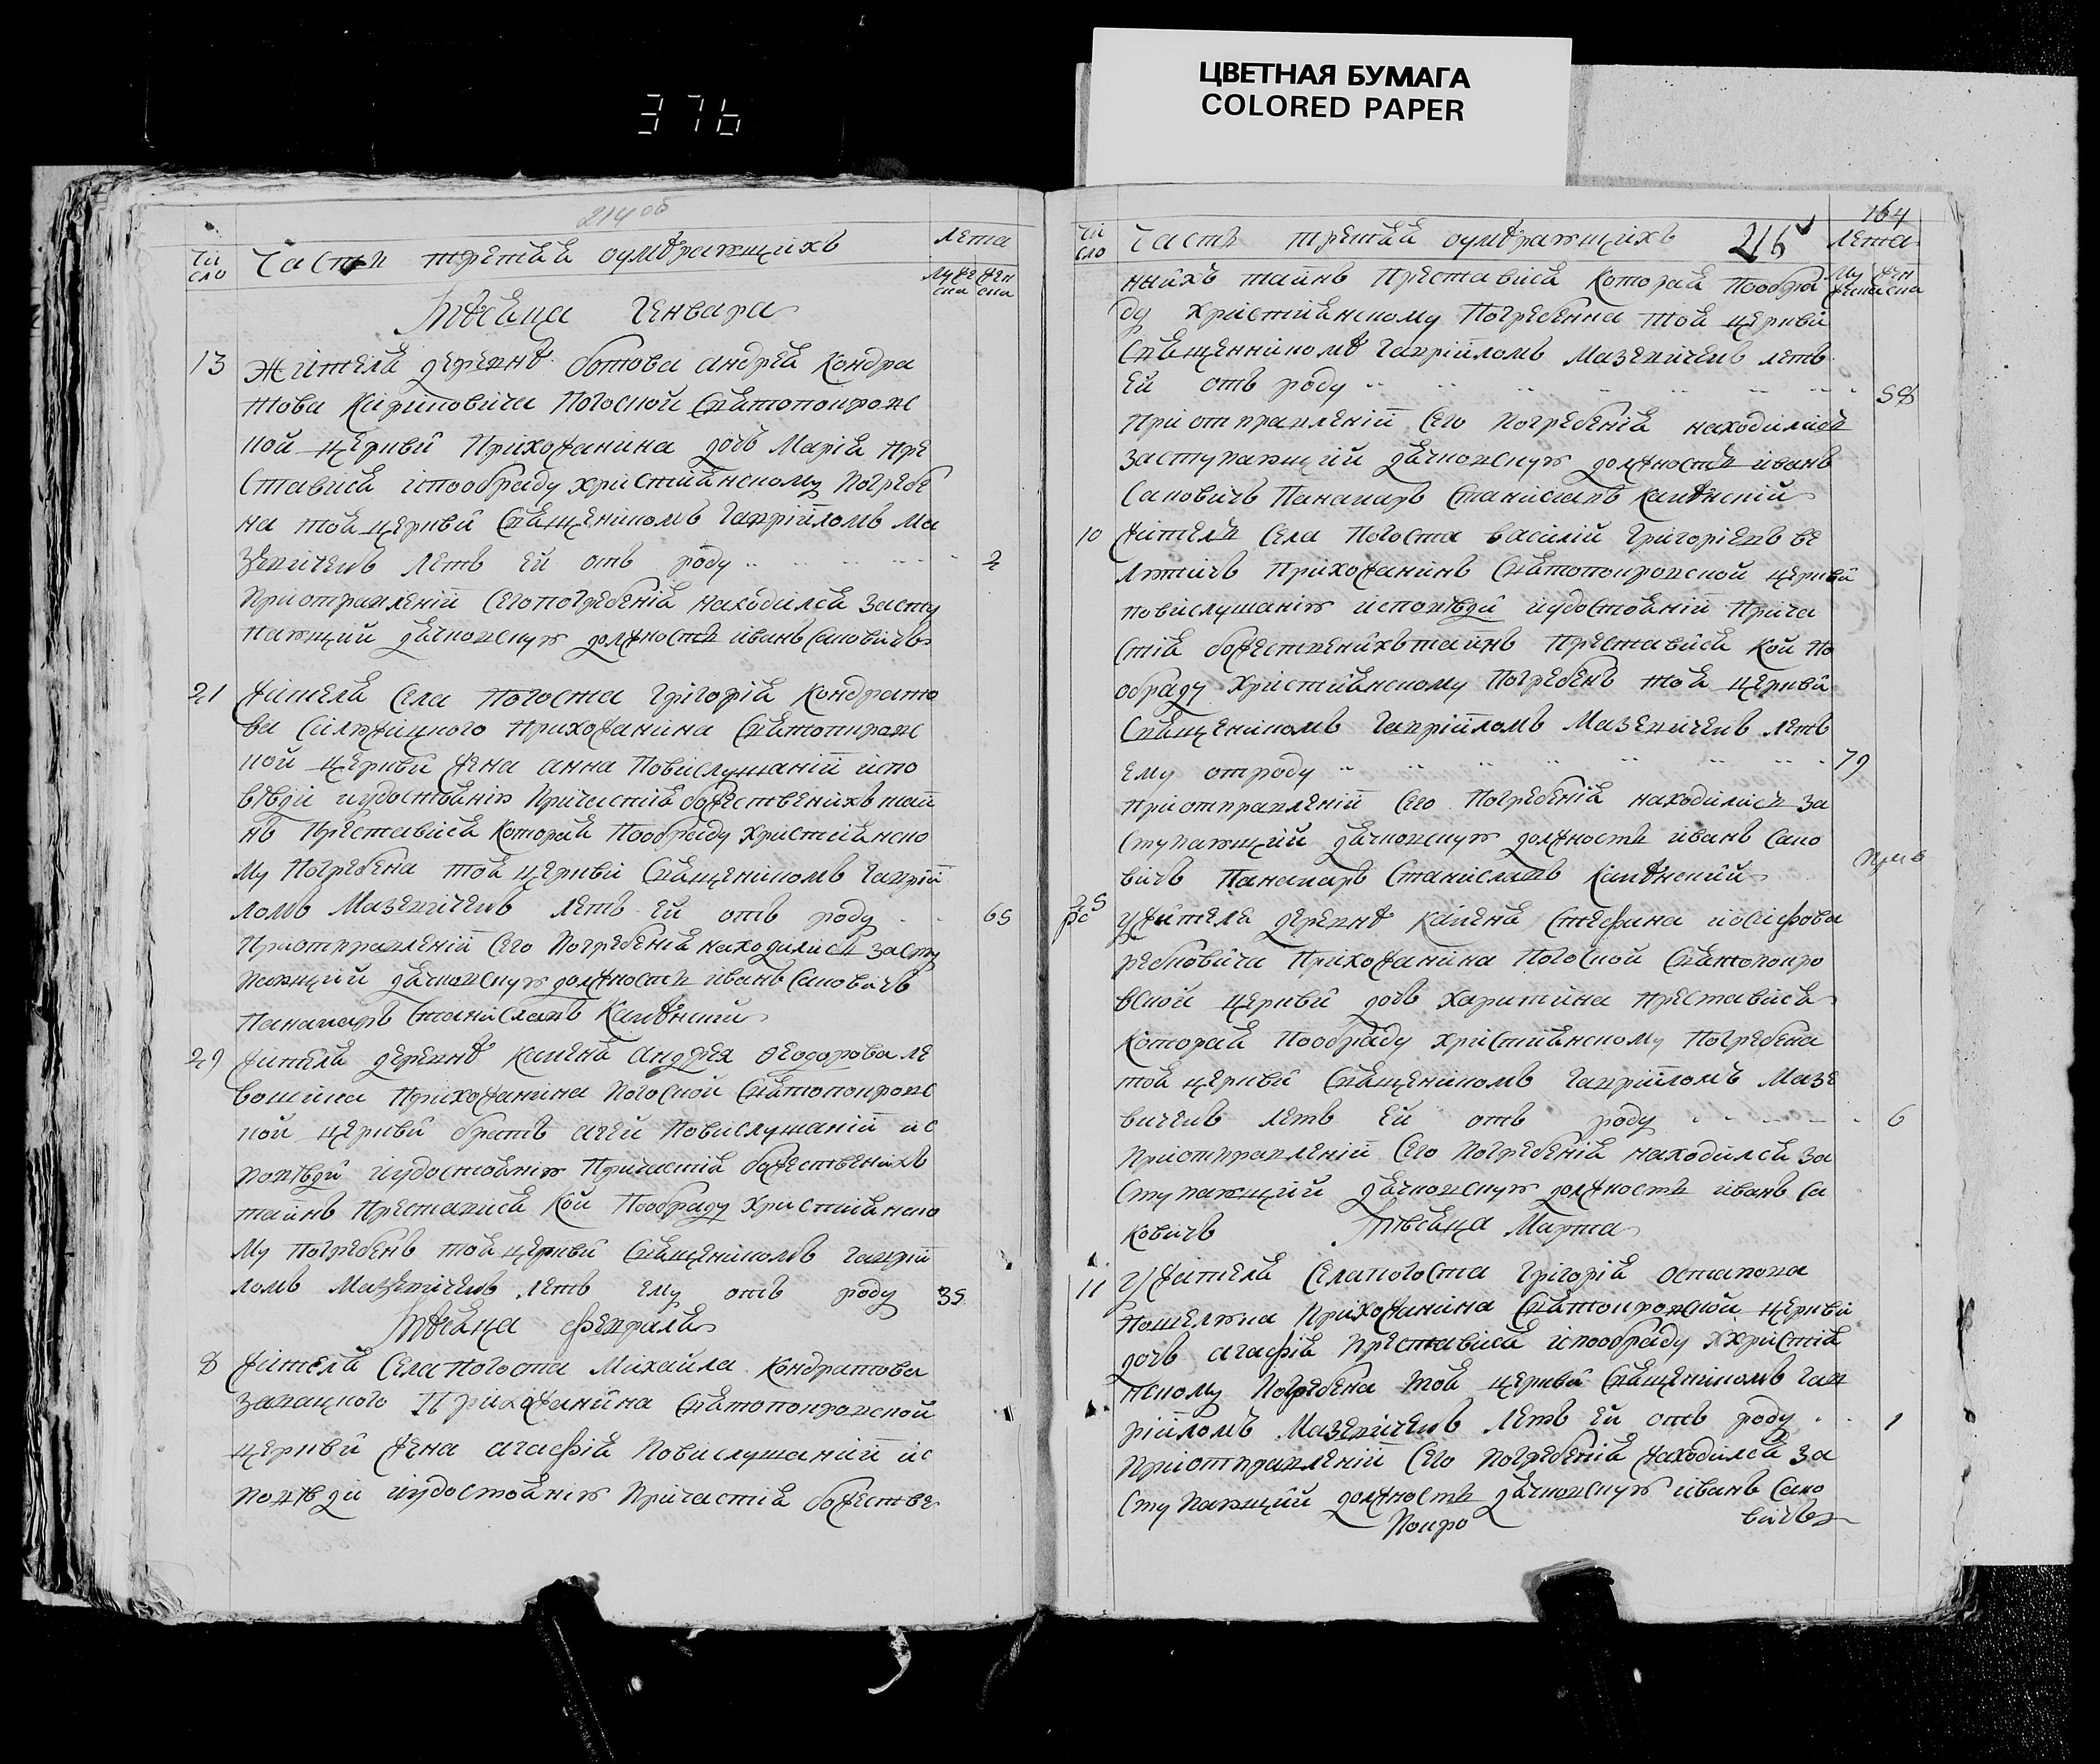 ЦВЕТНАЯ БУМАГА
COLORED PAPER
376
214 об
Чи
сло
Части третїя оумѣрающихъ
лета
муже
ска
жен
ска
Мѣсяца Генвара
13 Жителя деревнѣ Ботова андрея Кондра
това Кариповича Погоской Святопокровс
кой церкви Прихожанина дочь Марїя пре
ставися ипообраду християнскому погребе
на тоя церкви Священикомъ гаврїиломъ Ма
зевичемъ летъ ей отъ роду 2
Приотправленїи Сегопогребенїя находился засту
пающий дячковскую должность иванъ Саковичъ
21 жителя Села Погоста Григорїя Кондрато
ва прихожанина Святопокровс
кой церкви жена анна Повислушанїи испо
вѣди иудостоянїю Причастїя божественихъ тай
нъ Преставися Которая Пообраду християнско
му Погребена тоя церкви Священикомъ гаврїи
ломъ Мазевичемъ летъ ей отъ роду 65
Приотправленїи Сего Погребенїя находились засту
пающий дячковскую должность иванъ Саковичъ
Панамаръ Станиславъ Камѣнский
29 жителя деревнѣ Каменя Андрея Феодорова ле
вошика Прихожанина Погоской Святопокровс
кой церкви братъ Повислушанїи ис
повѣди иудостоянїю Причастїя божественихъ
тайнъ Преставися Кой Пообраду Християнско
му погребенъ тоя церкви Священикомъ гаврїи
ломъ Мазевичемъ летъ ему отъ роду 35
Мѣсяца февраля
8 жителя Села Погоста Михайла Кондратова
Прихожанина Святопокровской
церкви жена агафїя Повислушанїи ис
повѣди иудостоянїю Причастїя божестве
164
Чи
сло
Часть третїя оумѣрающихъ 216
лета
му
жска
жен
ска
нихъ тайнъ Преставися Которая Пообра
ду Християнскому Погребенна тоя церкви
Священникомъ гаврїиломъ Мазевичемъ летъ
ей отъ роду 58
Приотправленїи Сего погребенїя находились
заступающий дячковскую должность иванъ
Саковичъ Панамаръ Станиславъ Камѣнский
10 житель Села Погоста василий Григорїевъ ве
лютичъ Прихожанинъ Святопокровской церкви
повислушанїю исповѣди иудостоянїи Прича
стїя божественихътайнъ Преставися Кой По
обраду Християнскому Погребенъ тоя церкви
Священикомъ Гаврїиломъ Мазевичемъ летъ
ему отроду 79
приотправленїи Сего Погребенїя находились за
ступающий дячковскую должность иванъ Сако
вичъ Панамаръ Станиславъ Камѣнский
25 Ужителя деревнѣ Каменя Стефана иосифова
ребковича Прихожанина Погоской Святопокро
вской церкви дочь Харитина преставися
Которая Пообраду християнскому Погребена
тоя церкви Священикомъ Гаврїиломъ Мазе
вичемъ летъ ей отъ роду 6
Приотправленїи Сего Погребенїя находился за
ступающий дячковскую должность иванъ Са
ковичъ Мѣсяца Марта
11 Ужителя Селапогоста Григорїя остапова
Пашелюка Прихожанина Святопокровской церкви
дочь агафїя преставися ипообраду Ххристия
нскому Погребена тоя церкви Священикомъ гав
рїиломъ Мазевичемъ летъ ей отъ роду 1
Приотправленїи Сего погребенїя находился за
ступающий должность дячковскую иванъ Сако
вичъ
Покро